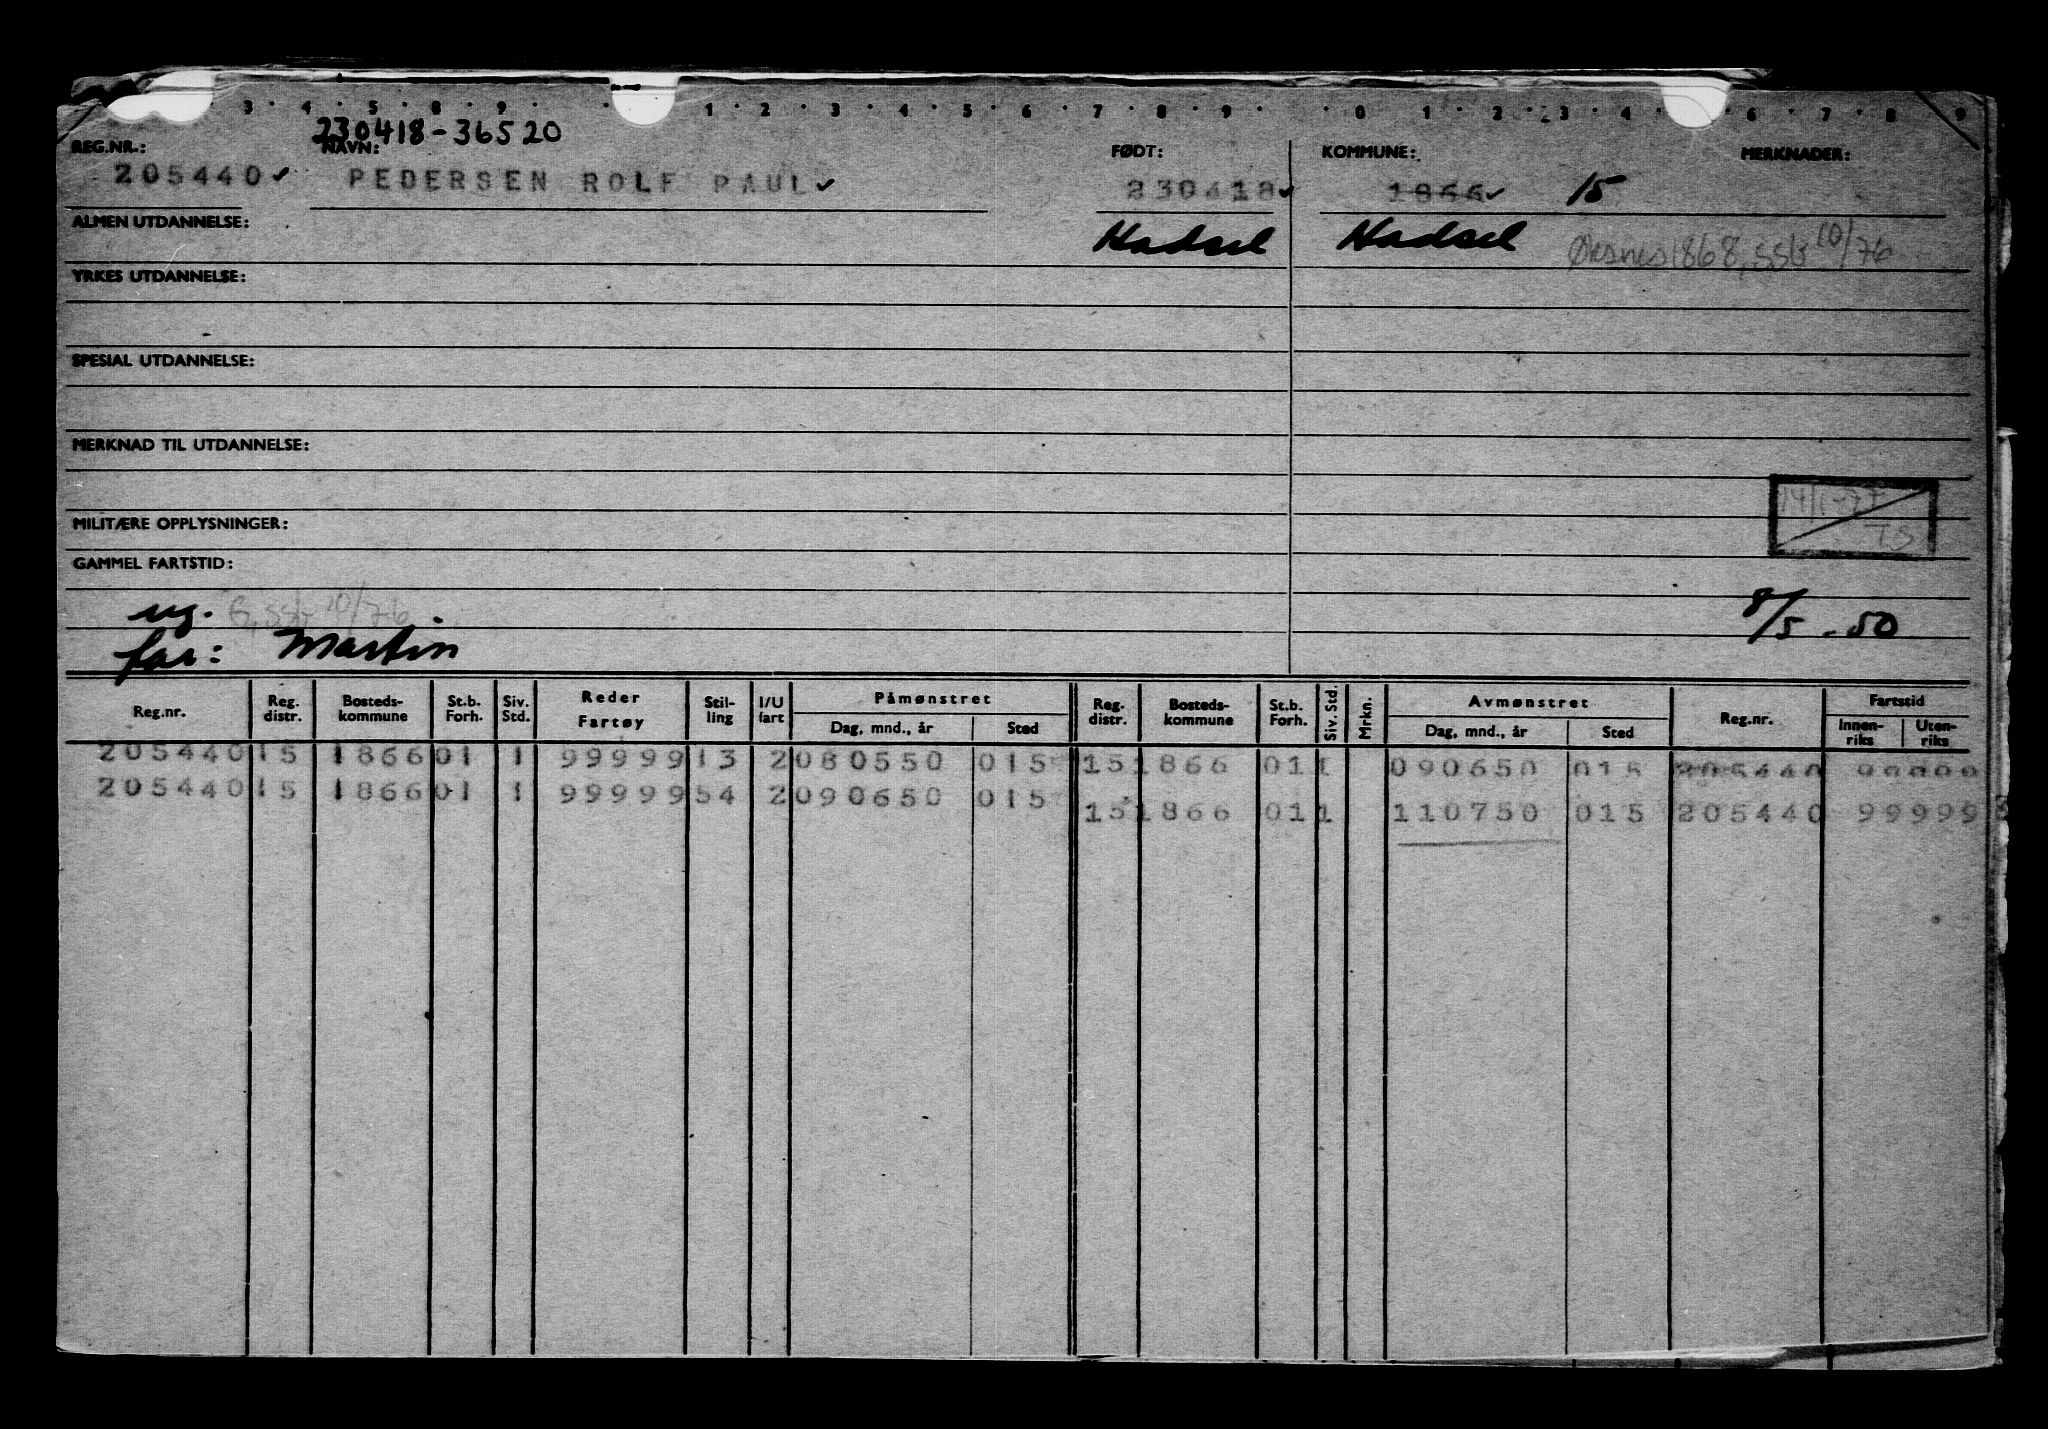 3 4 5 8 9 1 2 3 4 5 6 7 8 9 0 1 2 3 4 6 7 8 9
230418-36520
REG.NR.: NAVN: FØDT: KOMMUNE: MERKNADER:
205440 PEDERSEN ROLF PAUL 230418 1866 15
ALMEN UTDANNELSE: Hadsel Hadsel Øksnes 1868, ssb 10/76
YRKES UTDANNELSE:
SPESIAL UTDANNELSE:
MERKNAD TIL UTDANNELSE:
14/1-77
TS
MILITÆRE OPPLYSNINGER:
GAMMEL FARTSTID:
ug. G, ssb 10/76 8/5-50
far: Martin
Reg.nr. Reg. distr. Bosteds-kommune St.b. Forh. Siv. Std. Reder Fartøy Stil-ling I/U fart Påmønstret Dag, mnd., år Sted Reg. distr. Bosteds-kommune St.b. Forh. Siv. Std. Mrkn. Avmønstret Dag, mnd., år Sted Reg.nr. Fartstid Innen-riks Uten-riks
205440 15 1866 01 1 99999 13 2 080550 015 15 1866 01 1 090650 015 205440 99999
205440 15 1866 01 1 99999 54 2 090650 015 15 1866 01 1 110750 015 205440 99999 3